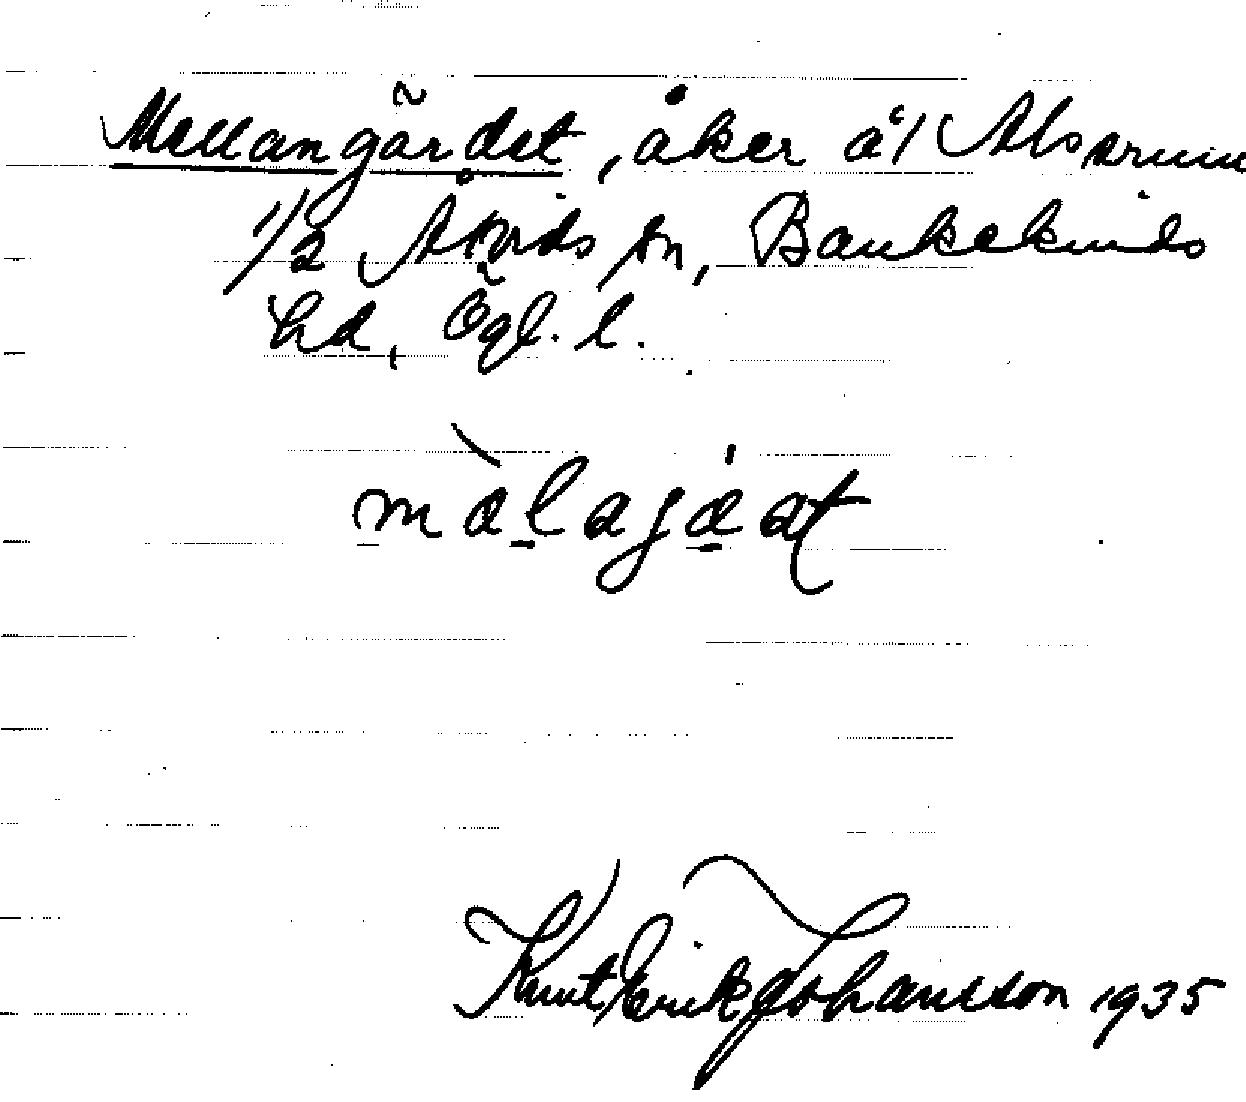 Mellangärdet, åker å/ Alsarum
1/2 Åtvids sn, Bankekinds
hd, Ögl. l.
màlagáat
Knut Erik Johansson 1935